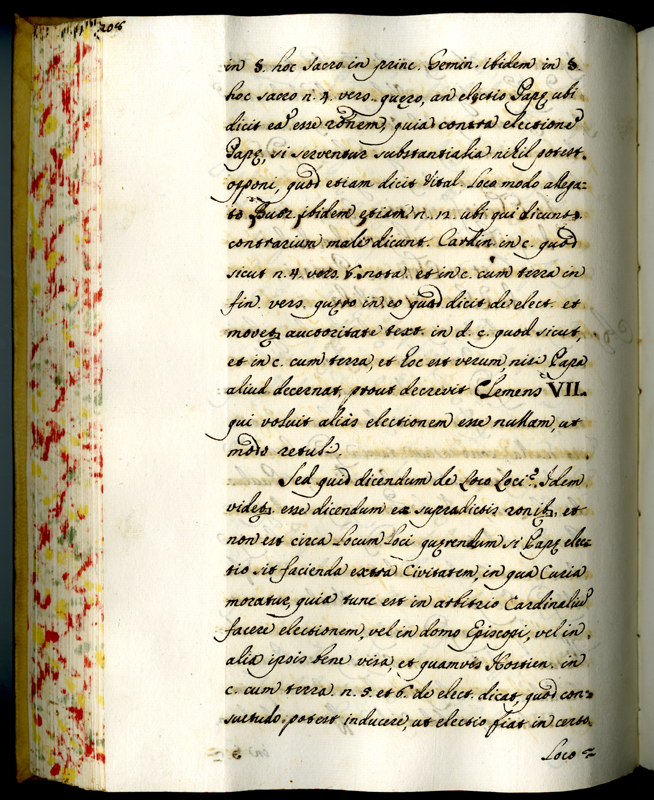 208
in §. hoc sacro in princ. Gemin. ibidem in §.
hoc sacro n. 4. vers. quęro, an electio Papę ubi
dicit ea᷒ esse ronem, quia contra electione᷒
Papę, si serventur substantialia nihil potest
opponi, quod etiam dicit Vital. loco modo allega=
to Butr. ibidem etiam n. 12. ubi qui dicunt
contrarium malè dicunt. Cardin. in c. quod
sicut n. 4. vers. 6. nota. et in c. cum terra in
fin. vers. quęro in eo quod dicit de elect. et
movetr auctoritate text. in d. c. quod sicut,
et in c. cum terra, et hoc est verum, nisi Papa
aliud decernat, prout decrevit Clemens VII.
qui voluit aliàs electionem esse nullam, ut
modo retuli.
Sed quid dicendum de Loco Loci? Idem
videtr esse dicendum ex supradictis ronib, et
non est circa Locum Loci quęrendum si Papę elec=
tio sit facienda extrà Civitatem, in qua Curia
moratur, quia tunc est in arbitrio Cardinaliu᷒
facere electionem, vel in domo Episcopi, vel in
alia ipsis bene visa, et quamvis Hostien. in
c. cum terra n. 5. et 6. de elect. dicat, quod con=
suetudo potest inducere, ut electio fiat in certo
Loco =